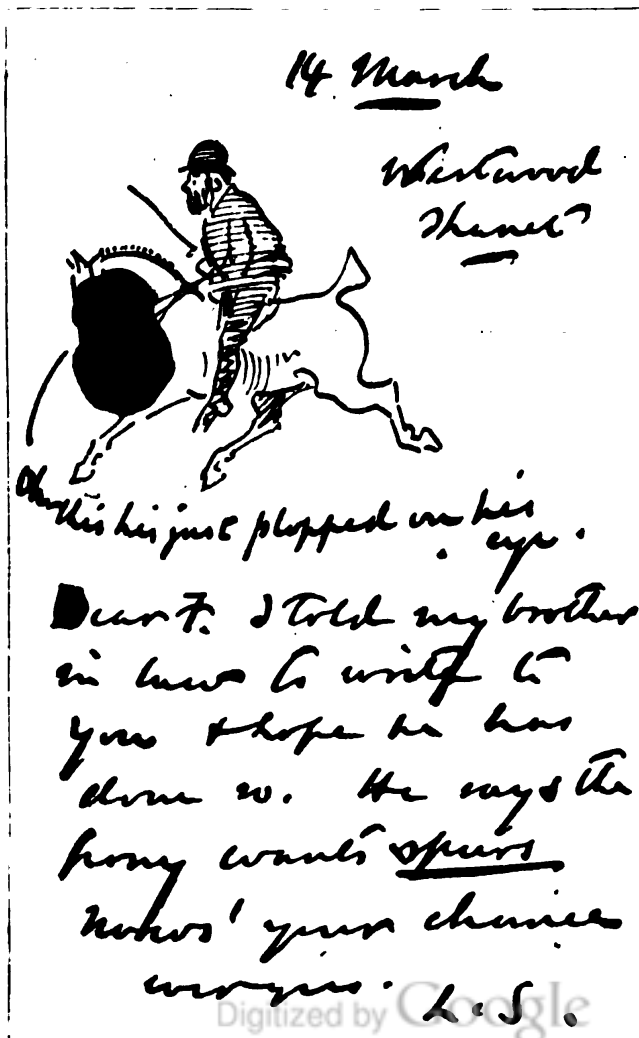 14 March
Westwood
Thanet
this his just plopped on his
eye.
Dear F. I told my brother
in law to write to
you & hope he has
done so. He says the
pony wants spurs
Now's your chance
L. S.
Digitized by Google